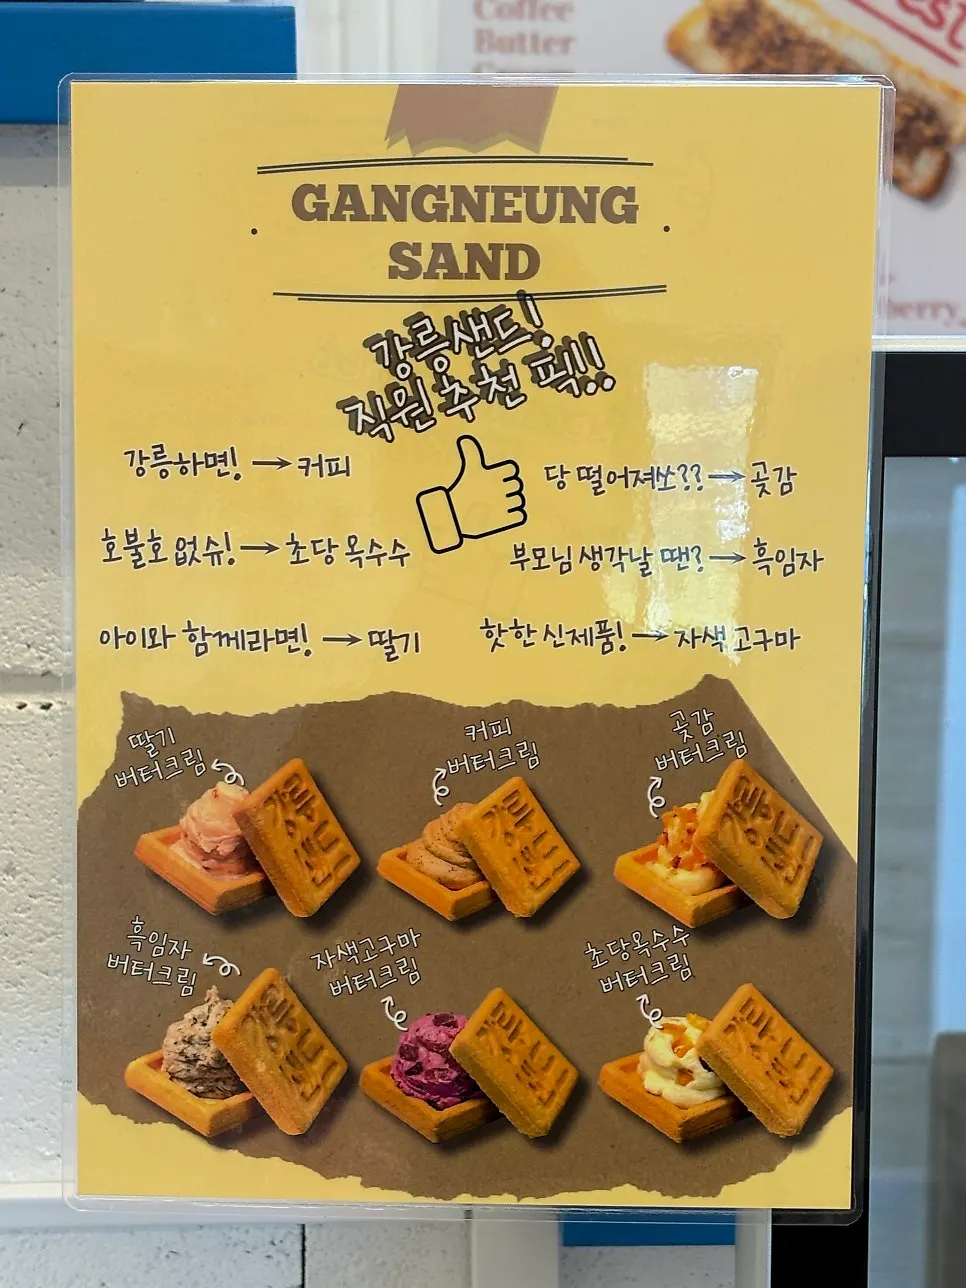 Coffee
Butter
GANGNEUNG
SAND
강릉샌드!
직원 추천 픽!!
강릉하면! → 커피
당 떨어져쏘?? → 곶감
호불호 없슈! → 초당 옥수수
부모님 생각날 땐? → 흑임자
아이와 함께라면! → 딸기
핫한 신제품! → 자색 고구마
딸기
버터크림
커피
버터크림
곶감
버터크림
흑임자
버터크림
자색고구마
버터크림
초당옥수수
버터크림